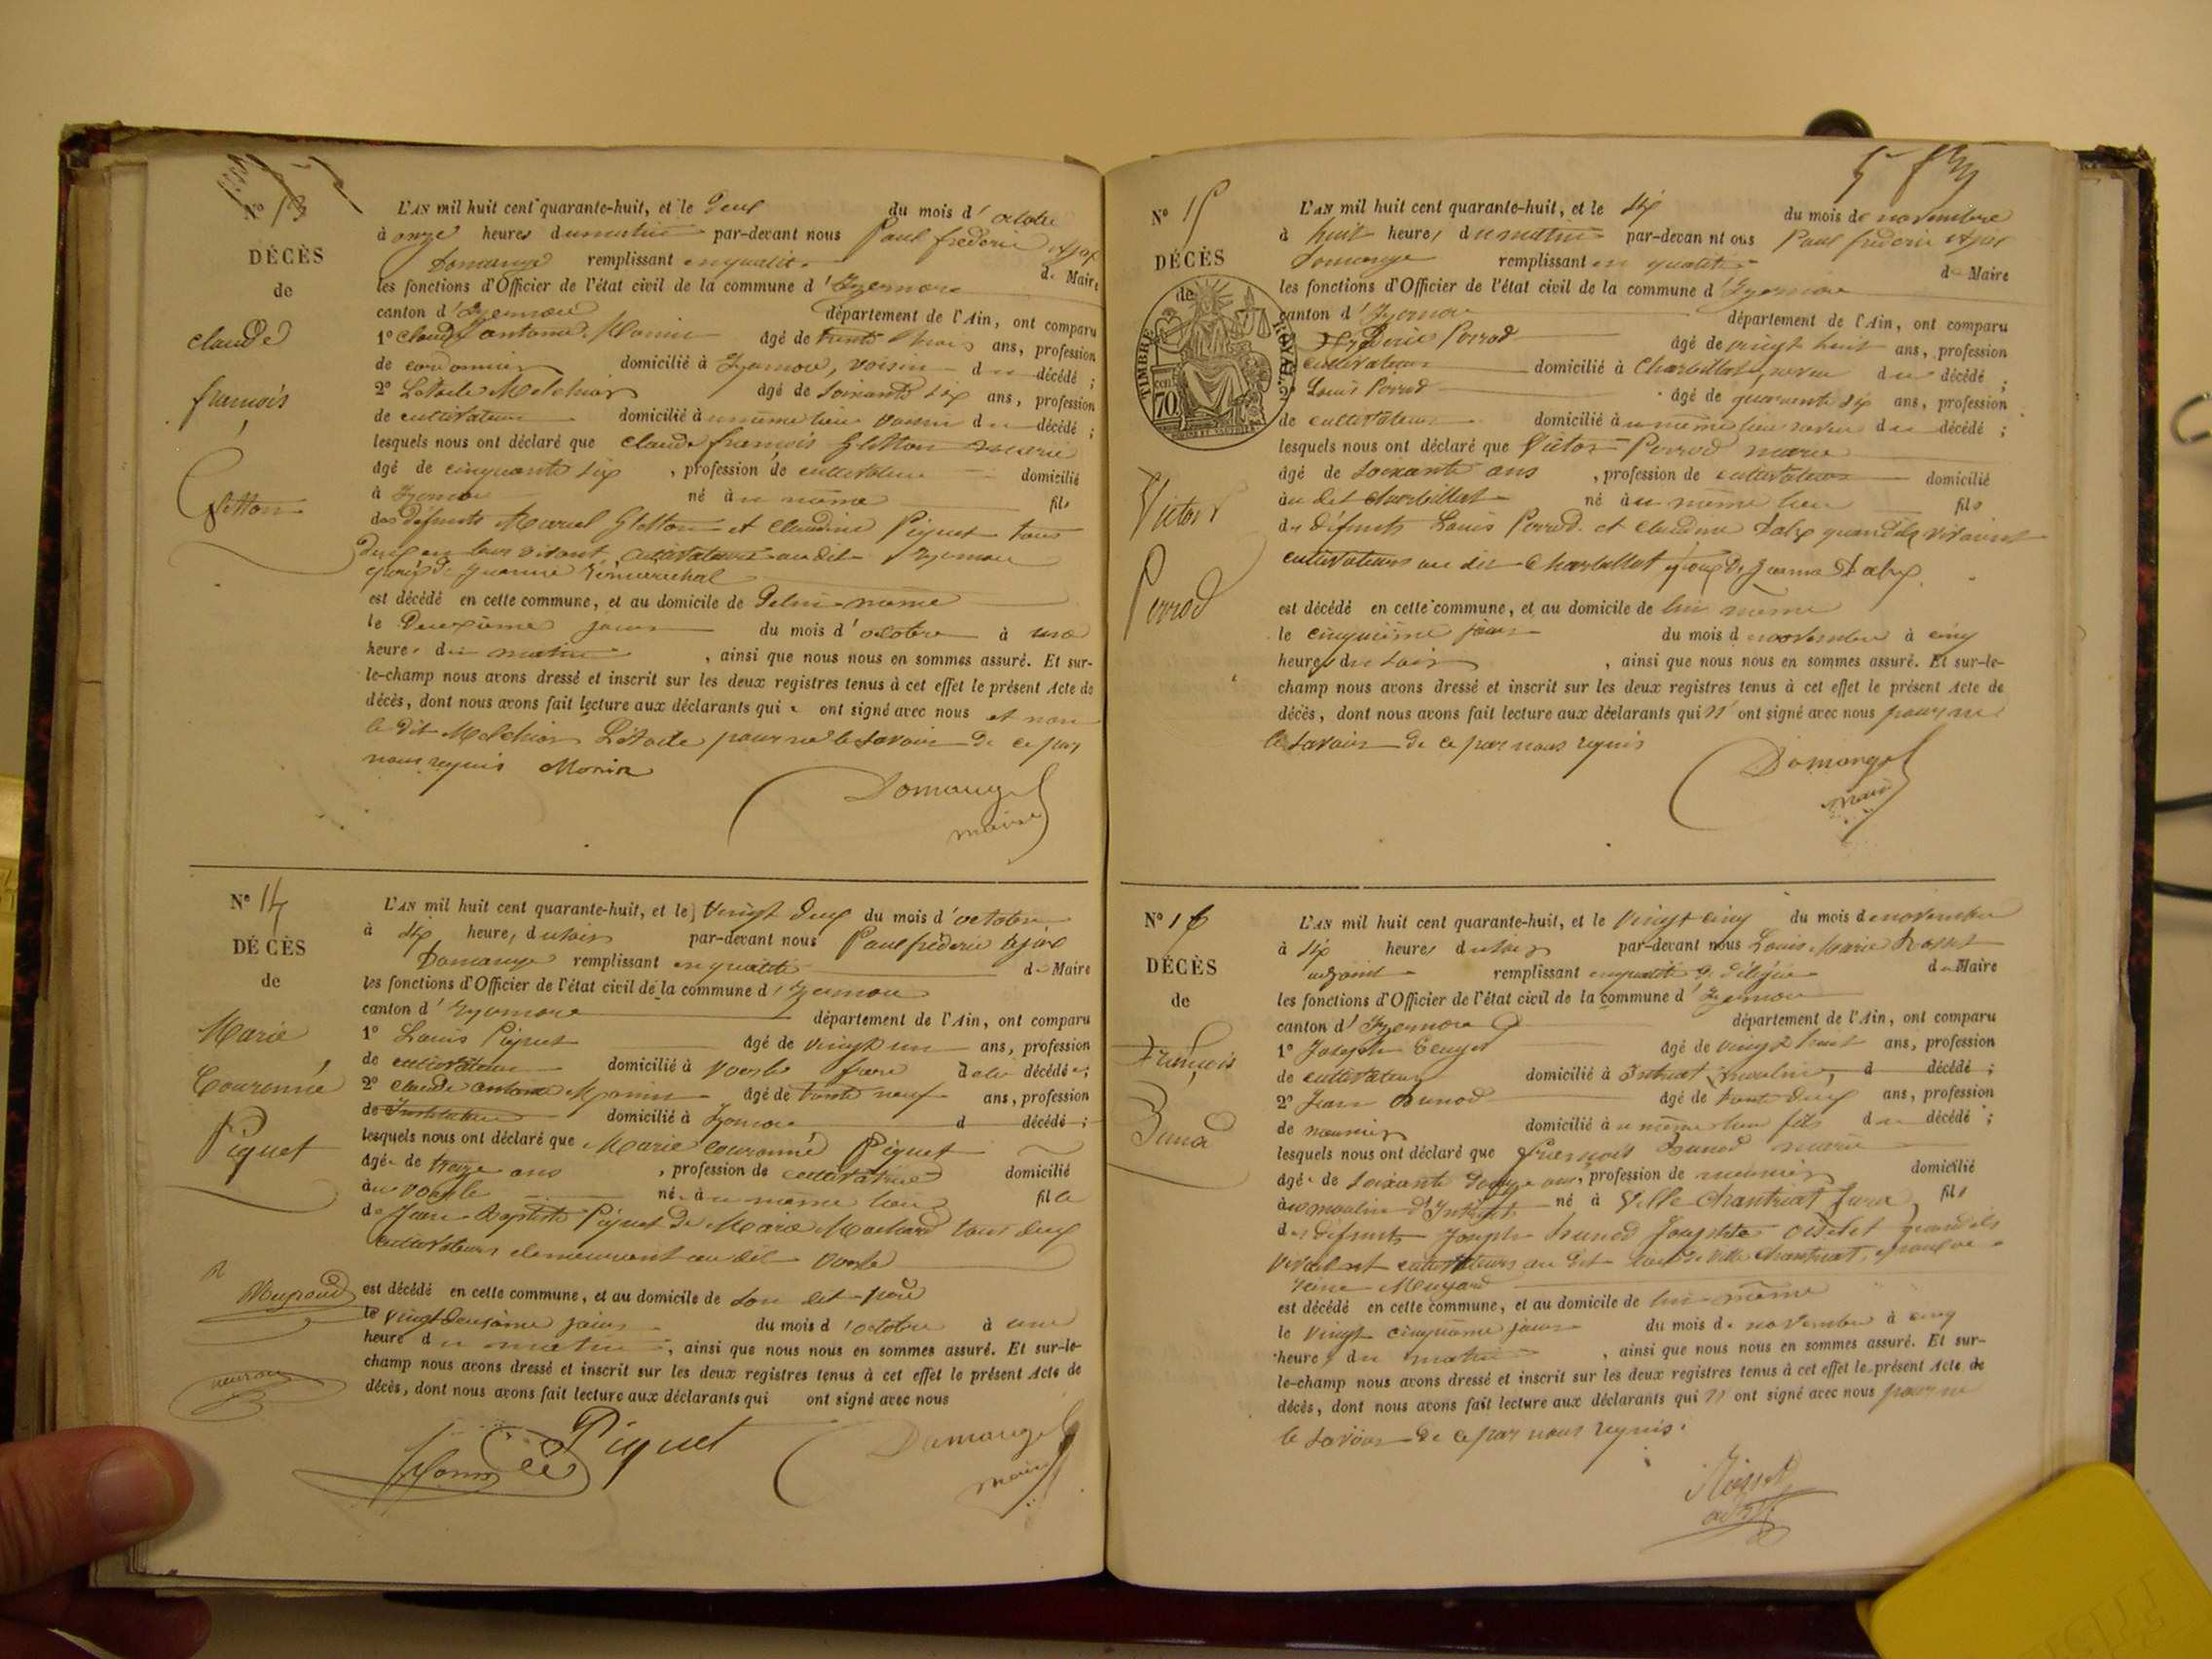 Nº 13
DÉCÈS
de
claude
françois
Gletton
L'AN mil huit cent quarante-huit, et le deux du mois d'octobre
à onze heures du matin par-devant nous Paul frederic Ajax
Domange remplissant en qualité de Maire
les fonctions d'Officier de l'état civil de la commune d'Izernore
canton d'Izernore département de l'Ain, ont comparu
1º Claude antoine Monin âgé de trente ans, profession
de cordonnier domicilié à Izernore, voisin du décédé ;
2º Létoile Melchior âgé de soixante six ans, profession
de cultivateur domicilié au même lieu voisin du décédé ;
lesquels nous ont déclaré que claude françois Gletton marié
âgé de cinquante six , profession de cultivateur domicilié
à Izernore né au même fils
des défunts Marcel Gletton et Claudine Piquet tous
deux en leur vivant cultivateurs au dit Izernore
époux de
est décédé en cette commune, et au domicile de de lui-même
le deuxième jour du mois d'octobre à une
heure du matin , ainsi que nous nous en sommes assuré. Et sur-
le-champ nous avons dressé et inscrit sur les deux registres tenus à cet effet le présent Acte de
décès, dont nous avons fait lecture aux déclarants qui ont signé avec nous et non
le dit Melchior Létoile pour ne le savoir de ce par
nous requis Monin
Domange
maire
Nº 14
DÉCÈS
de
Marie
Couronnée
Piquet
L'AN mil huit cent quarante-huit, et le vingt deux du mois d'octobre
à six heure, du soir par-devant nous Paul frederic Ajax
Domange remplissant en qualité de Maire
les fonctions d'Officier de l'état civil de la commune d'Izernore
canton d'Izernore département de l'Ain, ont comparu
1º Louis Piquet âgé de vingt un ans, profession
de cultivateur domicilié à Voerle frère de la décédée ;
2º claude antoine Monin âgé de trente neuf ans, profession
de Instituteur domicilié à Izernore d décédé ;
lesquels nous ont déclaré que Marie couronnée Piquet
âgée de treize ans , profession de cultivatrice domicilié
au Voerle née au même lieu fille
de Jean Baptiste Piquet de Marie Mochard tous deux
cultivateurs demeurant au dit Voerle
est décédé en cette commune, et au domicile de son dit père
le vingt deuxième jour du mois d'octobre à une
heure du matin , ainsi que nous nous en sommes assuré. Et sur-le-
champ nous avons dressé et inscrit sur les deux registres tenus à cet effet le présent Acte de
décès, dont nous avons fait lecture aux déclarants qui ont signé avec nous
Monin Piquet Domange
maire
Nº 15
DÉCÈS
de
TIMBRE ROYAL
70
Victor
Perrod
L'AN mil huit cent quarante-huit, et le six du mois de novembre
à huit heures du matin par-devan nt ous Paul frederic Ajax
Domange remplissant en qualité de Maire
les fonctions d'Officier de l'état civil de la commune d'Izernore
canton d'Izernore département de l'Ain, ont comparu
Perrod âgé de vingt huit ans, profession
cultivateur domicilié à Charbillat, neveu du décédé ;
2º Louis Perrod âgé de quarante six ans, profession
de cultivateur domicilié au même lieu neveu du décédé ;
lesquels nous ont déclaré que Victor Perrod marié
âgé de soixante ans , profession de cultivateur domicilié
au dit charbillat né au même lieu fils
des défunts Louis Perrod et claudine Dalex quand ils vivaient
cultivateurs au dit Charbillat époux de Jeanne Dalex
est décédé en cette commune, et au domicile de lui même
le cinquième jour du mois de novembre à cinq
heures du soir , ainsi que nous nous en sommes assuré. Et sur-le-
champ nous avons dressé et inscrit sur les deux registres tenus à cet effet le présent Acte de
décès, dont nous avons fait lecture aux déclarants qui n'ont signé avec nous pour ne
le savoir de ce par nous requis
Domange
maire
Nº 16
DÉCÈS
de
françois
Bunod
L'AN mil huit cent quarante-huit, et le vingt cinq du mois de novembre
à six heures du soir par-devant nous Louis Marie Rosset
adjoint remplissant en qualité de délégué du Maire
les fonctions d'Officier de l'état civil de la commune d'Izernore
canton d'Izernore département de l'Ain, ont comparu
1º Joseph âgé de vingt huit ans, profession
de cultivateur domicilié à Intriat, moulin, d décédé ;
2º Jean Bunod âgé de trente deux ans, profession
de meunier domicilié au même lieu fils du décédé ;
lesquels nous ont déclaré que françois Bunod marié
âgé de soixante douze ans, profession de meunier domicilié
au moulin d'Intriat né à Ville Chantriat Jura, fils
des défunts Joseph Bunod Josephte quand ils
vivaient cultivateurs au dit lieu de Ville Chantriat,
est décédé en cette commune, et au domicile de lui-même
le vingt cinquième jour du mois de novembre à cinq
heures du matin , ainsi que nous nous en sommes assuré. Et sur-
le-champ nous avons dressé et inscrit sur les deux registres tenus à cet effet le présent Acte de
décès, dont nous avons fait lecture aux déclarants qui n'ont signé avec nous pour ne
le savoir de ce par nous requis.
Rosset
adjt